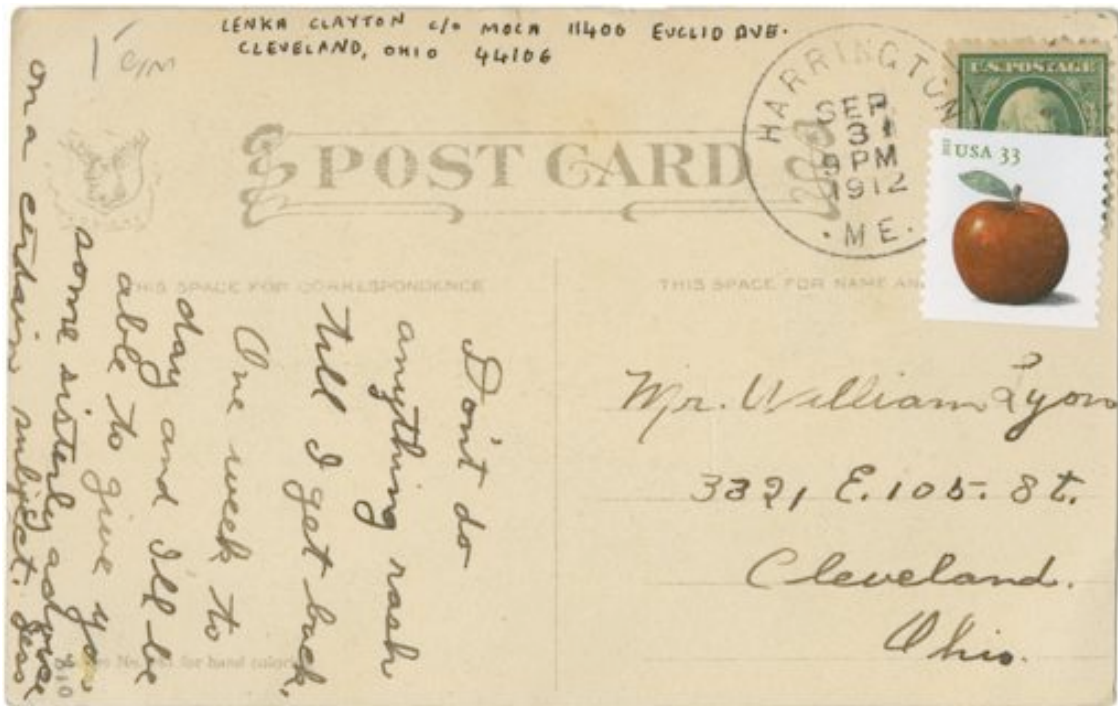 LENKA CLAYTON C/O MOCA 11400 EUCLID AVE.
CLEVELAND, OHIO 44106
C/M
HARRINGTON
SEP
31
PM
1912
ME.
U.S. POSTAGE
USA 33
POST CARD
THIS SPACE FOR CORRESPONDENCE
THIS SPACE FOR NAME AN
Don't do
anything rash
till I get back.
One week to
day and I'll be
able to give you
some sisterly advice
on a certain subject. Jess
Mr. William Lyon
3321 E. 105. St.
Cleveland.
Ohio.
for hand color